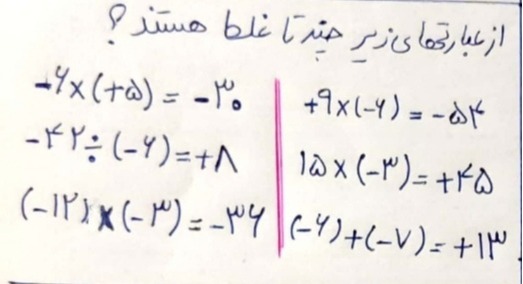 از عبارتهای زیر چند تا غلط هستند؟
-۶×(+۵) = -۳۰
-۴۲÷(-۶)=+۸
(-۱۲)×(-۳)=-۳۶
+۹×(-۶) = -۵۴
۱۵×(-۳)=+۴۵
(-۶)+(-۷)=+۱۳